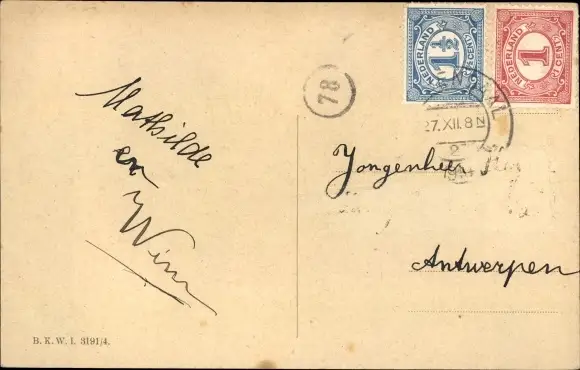 Mathilde
en
Wim
B. K. W. I. 3191/4.
78
NEDERLAND
1½
CENT
NEDERLAND
1
CENT
27.XII.8 N
2
Jongenheer
Antwerpen